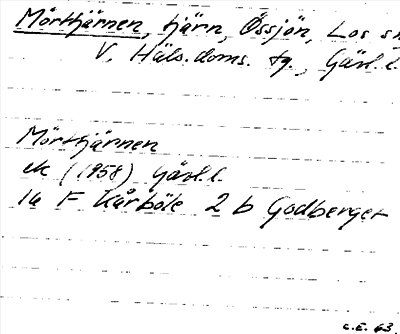 Mörttjärnen, tjärn, Össjön, Los sn
V. Häls. doms. tg., Gävl. l.
Mörttjärnen
ek (1958) Gävl. l.
16 F Kårböle 2 b Godberget
C.E. 63.